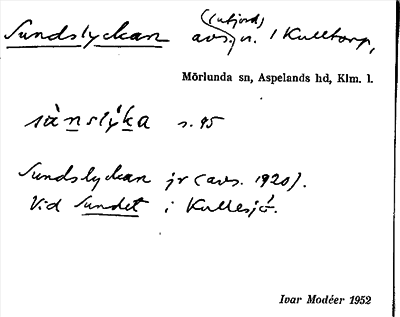 (utjord)
Sundslyckan avs. n. 1 Kulltorp,
Mörlunda sn, Aspelands hd, Klm. l.
s. 95
Sundslyckan jr (avs. 1920).
Vid Sundet i Kullesjö.
Ivar Modéer 1952